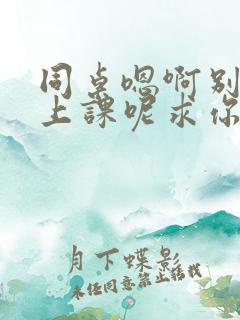 同桌嗯啊别
上课呢求你
月下蝶影
未经同意禁止转载